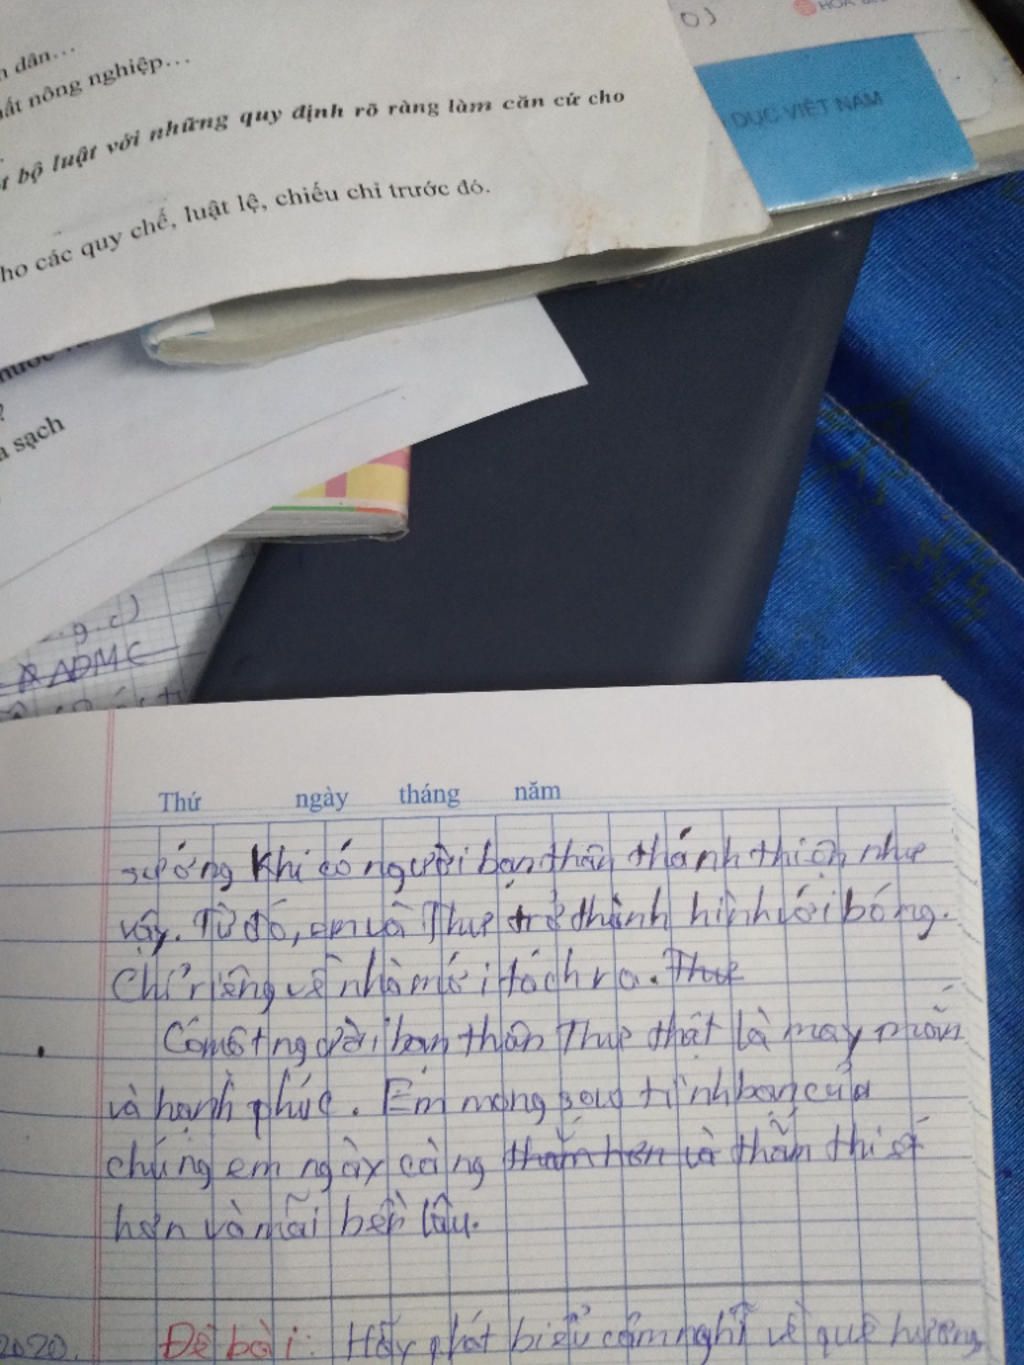 dân...
nông nghiệp...
bộ luật với những quy định rõ ràng làm căn cứ cho
cho các quy chế, luật lệ, chiếu chỉ trước đó.
DỤC VIỆT NAM
sạch
ADMC
Thứ ngày tháng năm
sướng khi có người bạn thân thánh thiện như
vậy. Từ đó, em và Thư trở thành hình với bóng.
Chỉ riêng về nhà mới tách ra. Thư
Có một người bạn thân Thư thật là may mắn
và hạnh phúc. Em mong sao tình bạn của
chúng em ngày càng thắm hơn và thắm thiết
hơn và mãi bền lâu.
2020. Đề bài: Hãy phát biểu cảm nghĩ về quê hương